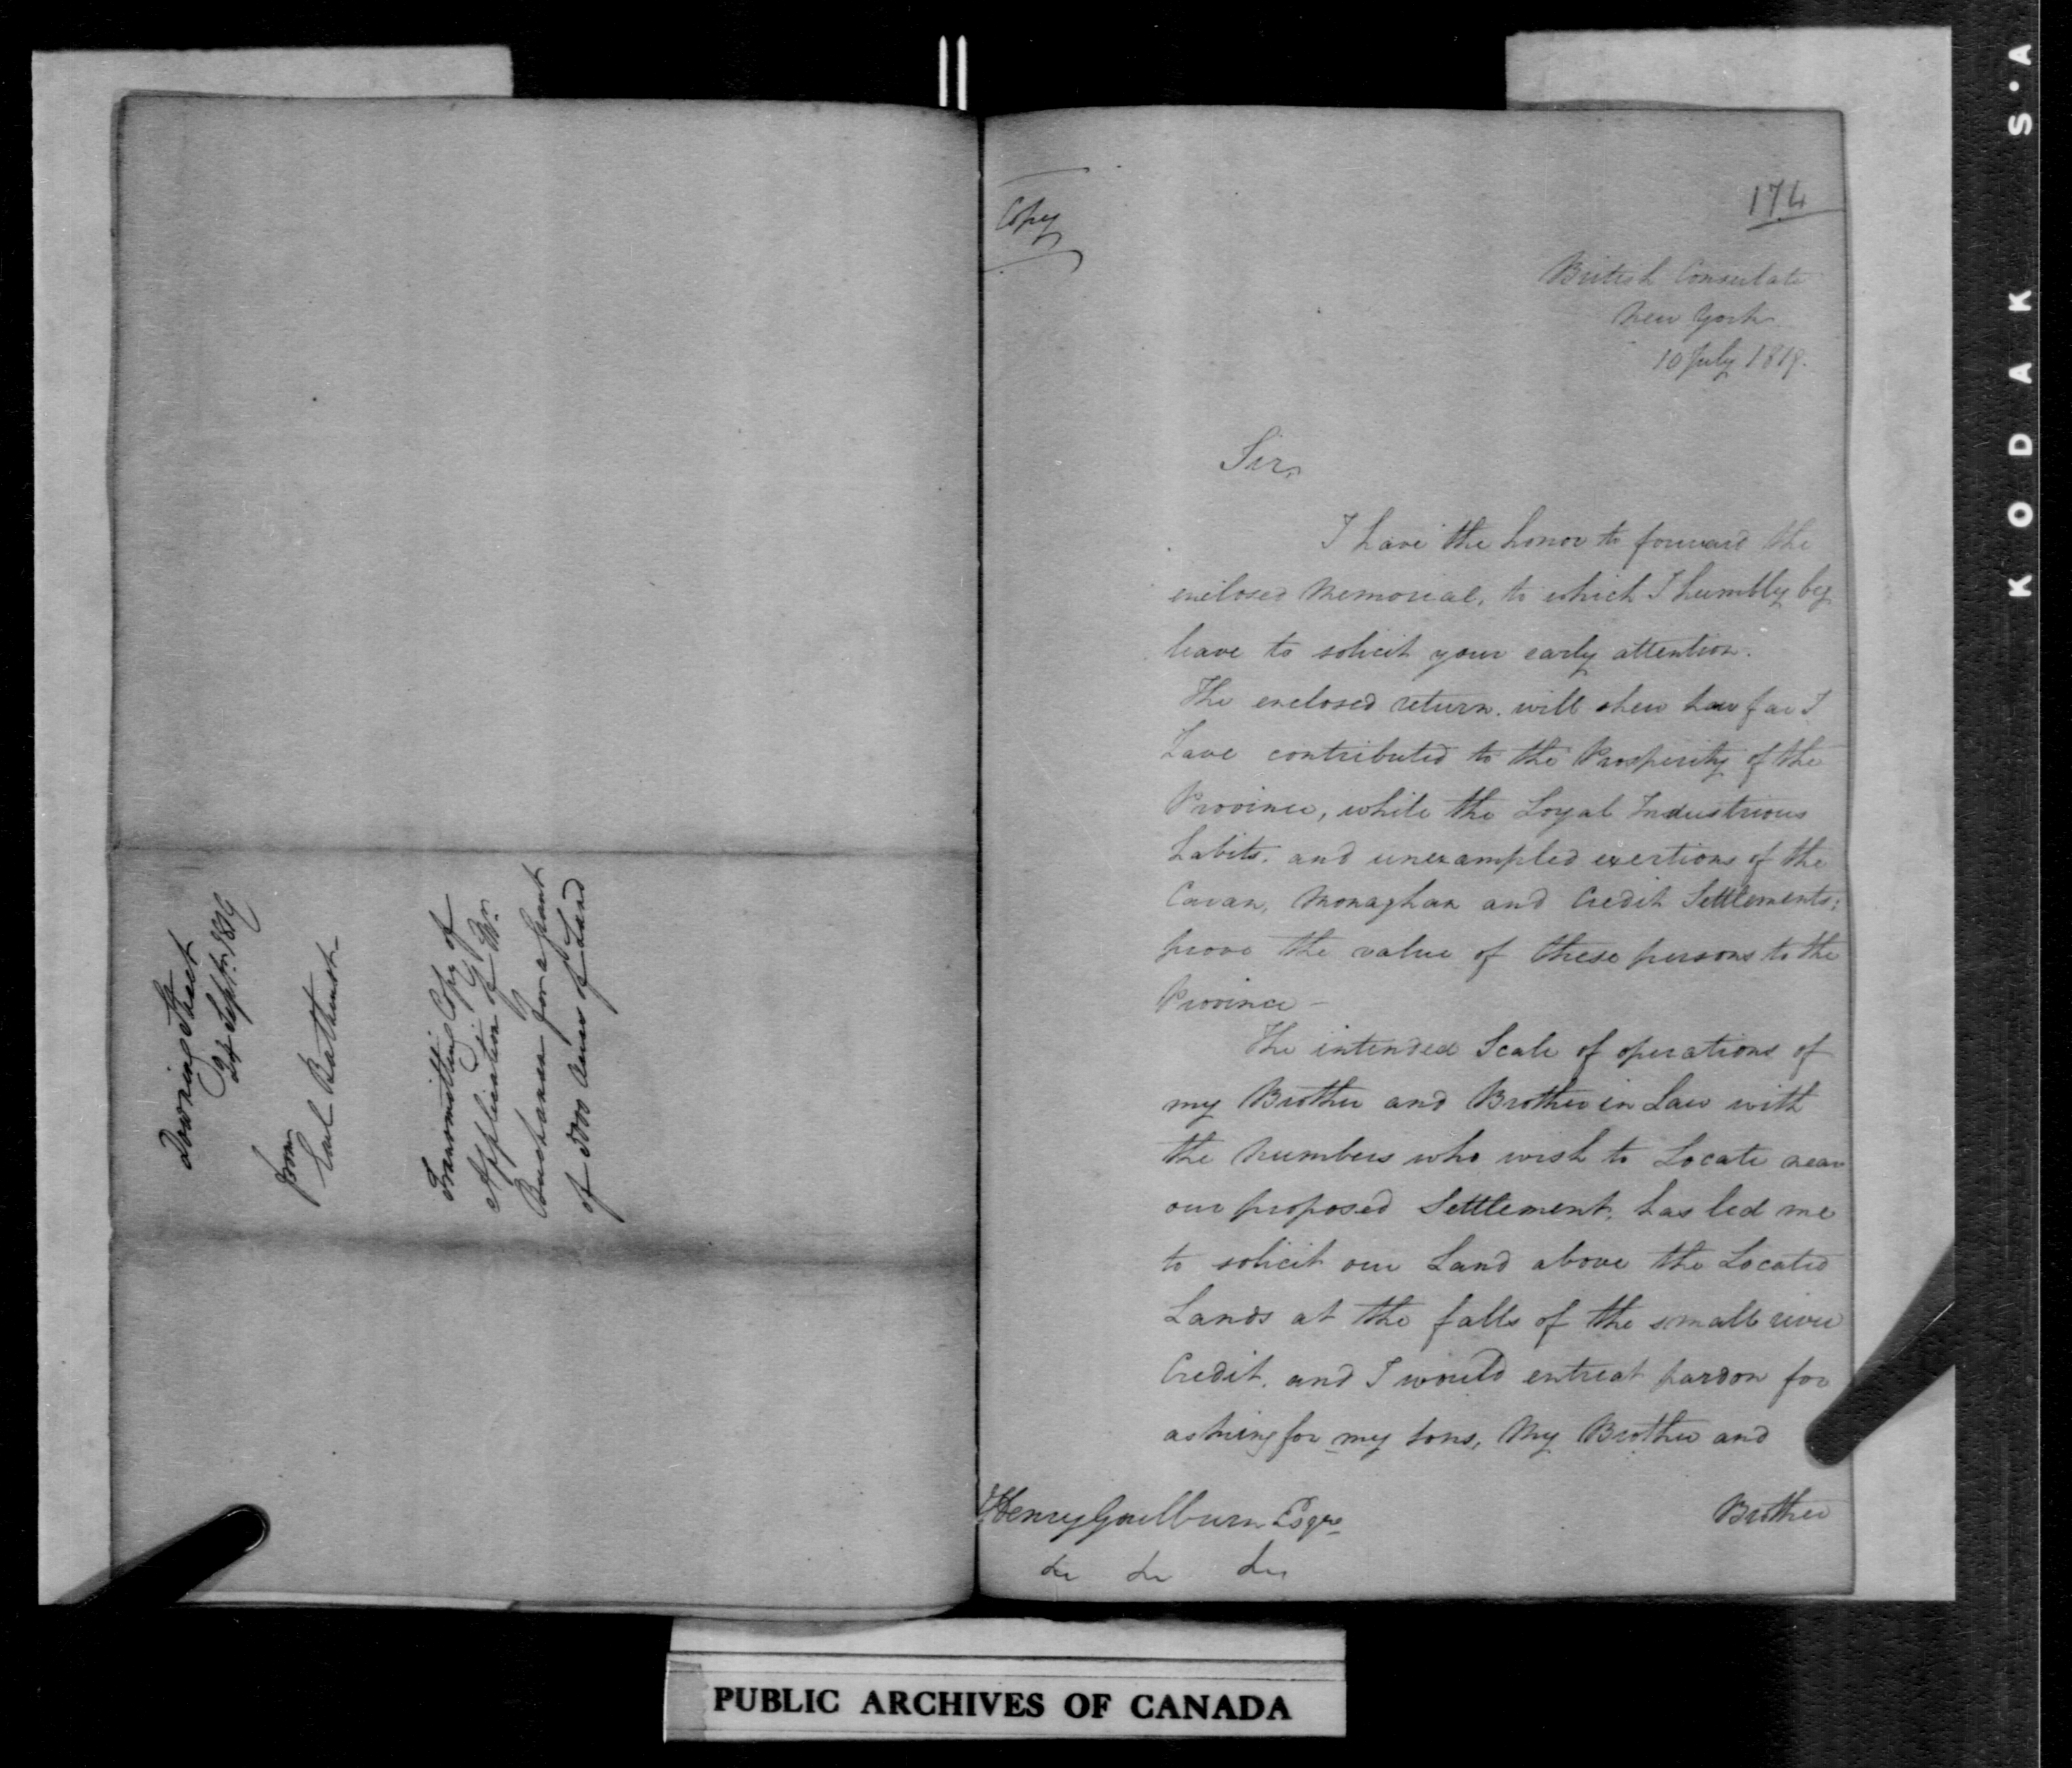 Downing Street
24 Septr. 1819
from
Earl Bathurst
Transmitting Copy of
Application of Mr.
Buchanan for a grant
of 5000 Acres of Land
Copy
174
British Consulate
New York
10 July 1819.
Sir,
I have the honor to forward the
enclosed Memorial, to which I humbly beg
leave to solicit your early attention.
The enclosed return will shew how far I
have contributed to the Prosperity of the
Province, while the Loyal Industrious
habits, and unexampled exertions of the
Cavan, Monaghan and Credit Settlements;
prove the value of these persons to the
Province -
The intended Scale of operations of
my Brother and Brother in Law with
the Numbers who wish to Locate near
our proposed Settlement, has led me
to solicit our Land above the Located
Lands at the falls of the small river
Credit, and I would entreat pardon for
asking for my sons, My Brother and
Brother
Henry Goulburn Esqre
&c &c &c
PUBLIC ARCHIVES OF CANADA
KODAK S.A